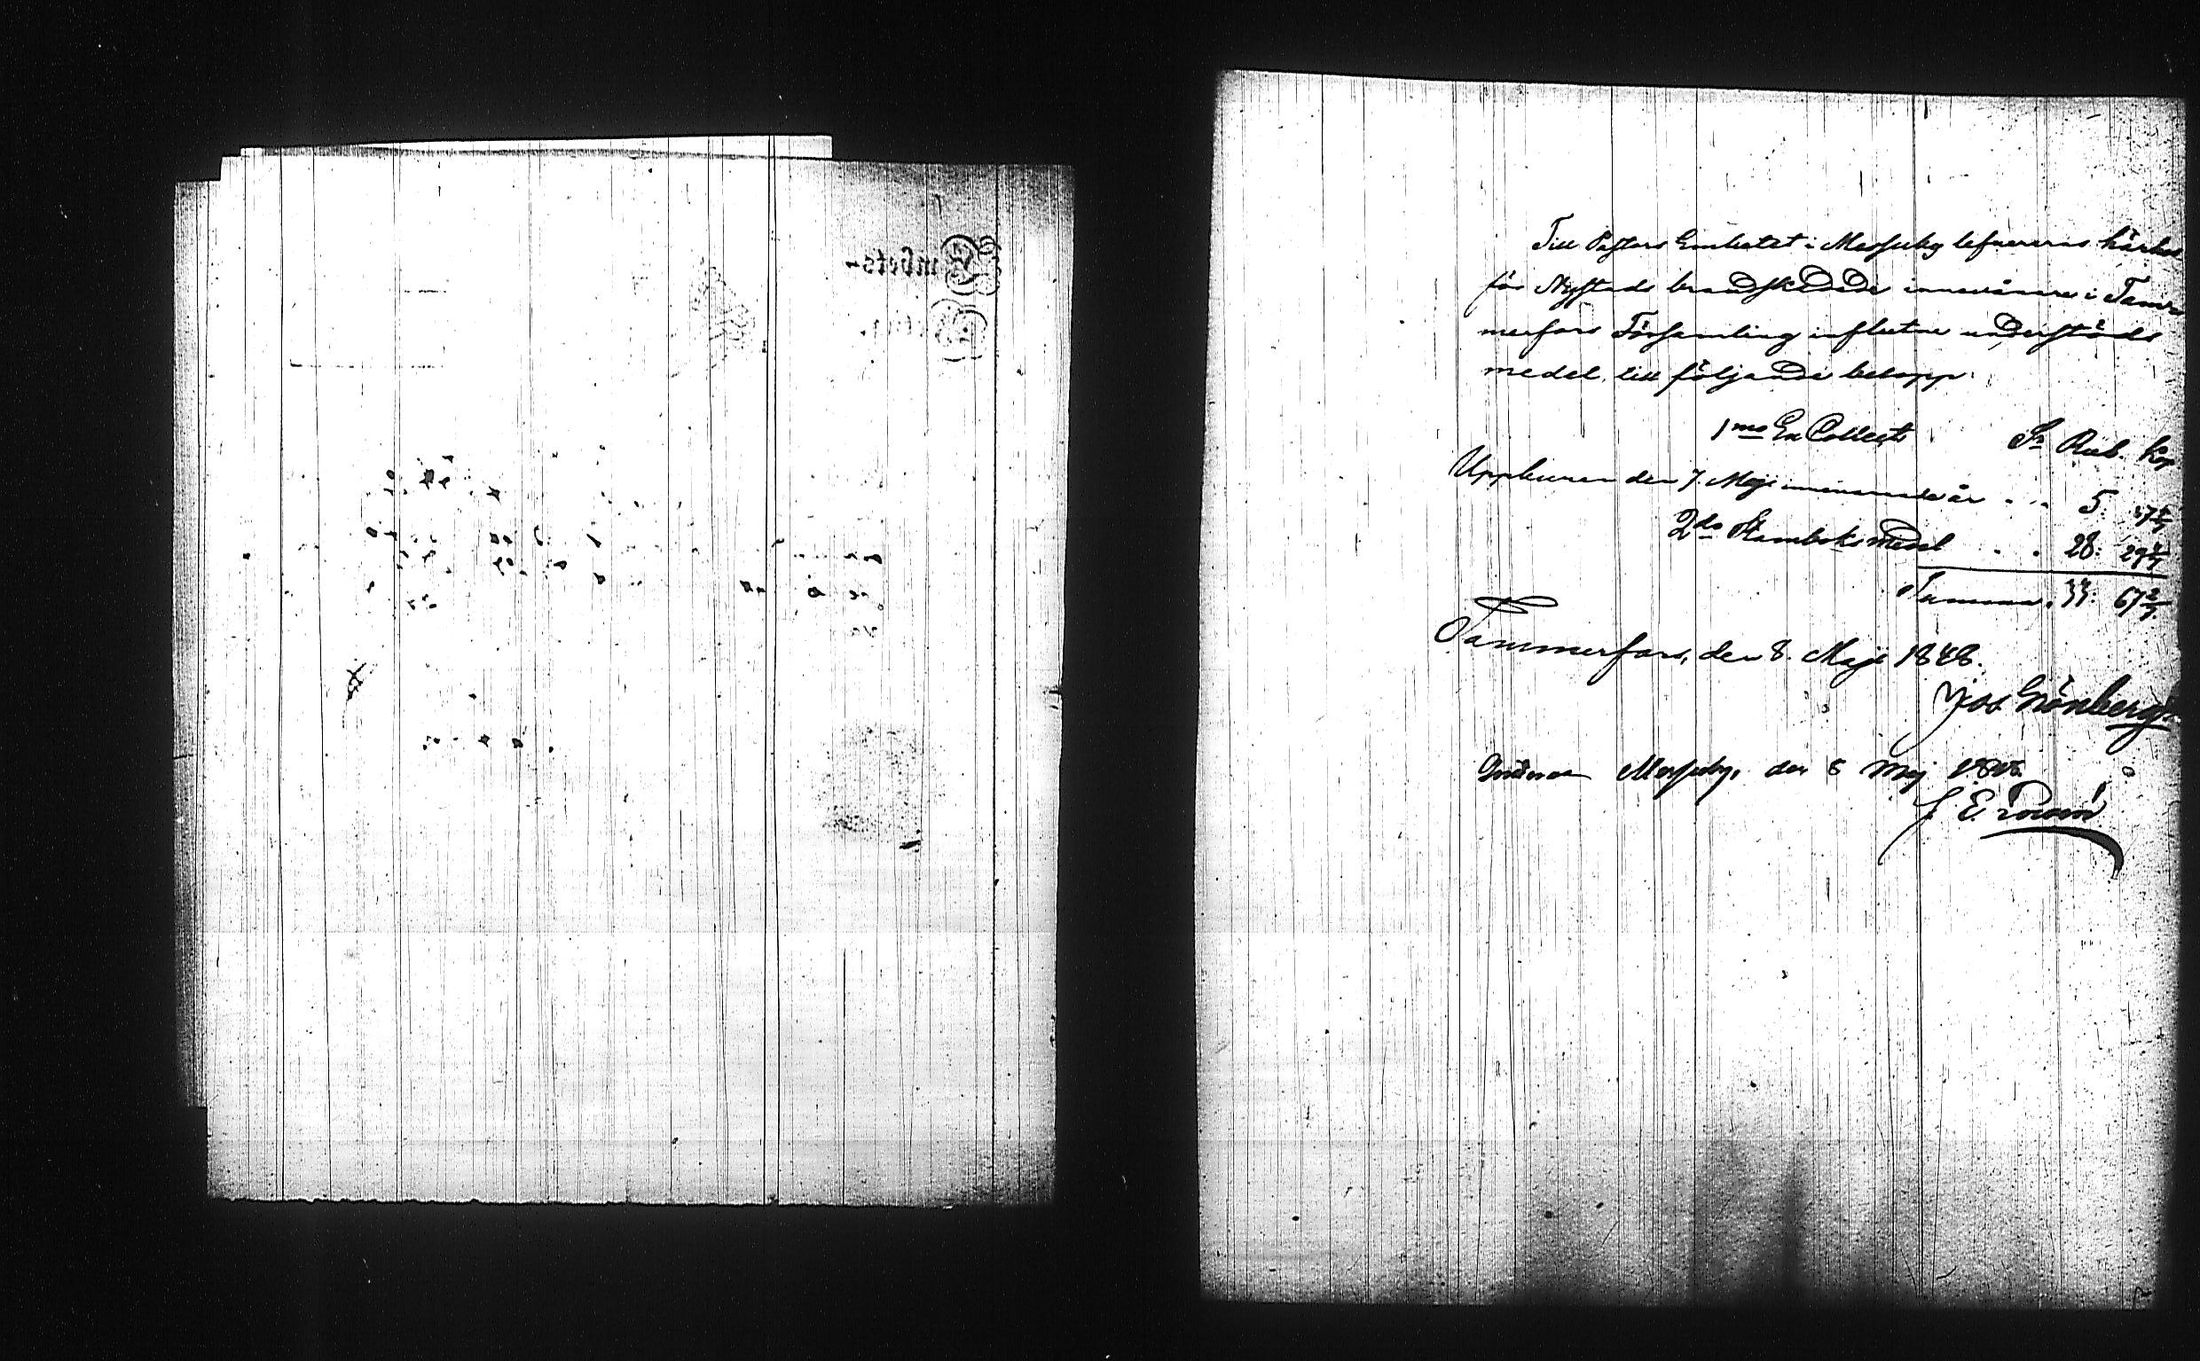 Embets-
Till Pastors Embetet i Messuby lefvereras härhos
för Nystads brandskadade innevånare i Tam-
merfors Församling influtne understöds
medel till följande belopp:
1mo En Collect Sr Rub. Kop
Uppburen den 7. Maji innevarande år . . 5: 37 5/7
2do Stamboksmedel . . 28: 29 4/7
Summa. 33: 67 2/7
Tammerfors, den 8. Maji 1848.
Jos Grönberg
Messuby, den 8 Maj 1848.